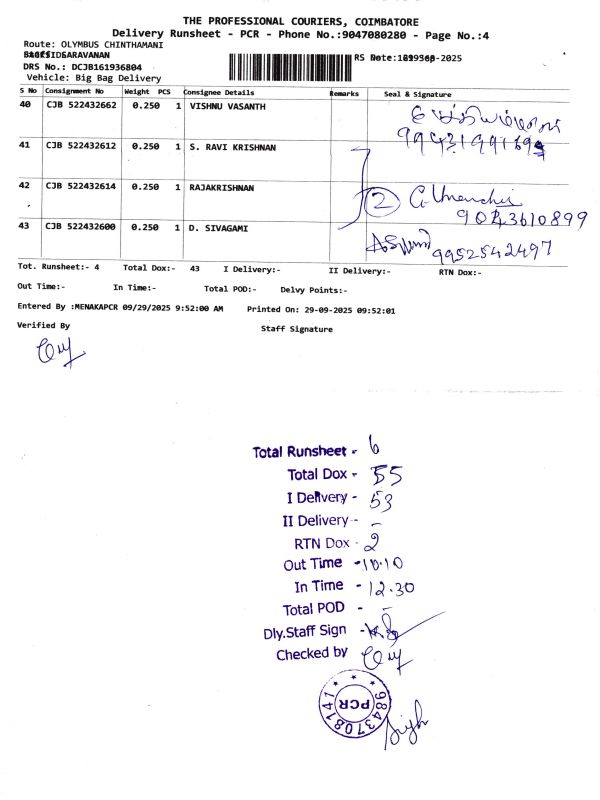 THE PROFESSIONAL COURIERS, COIMBATORE
Delivery Runsheet - PCR - Phone No.:9047080280 - Page No.:4
Route: OLYMBUS CHINTHAMANI
SARAVANAN
DRS No.: DCJB161936804
Vehicle: Big Bag Delivery
S No Consignment No Weight PCS Consignee Details Remarks Seal & Signature
40 CJB 522432662 0.250 1 VISHNU VASANTH
41 CJB 522432612 0.250 1 S. RAVI KRISHNAN
42 CJB 522432614 0.250 1 RAJAKRISHNAN 2
9043610899
43 CJB 522432600 0.250 1 D. SIVAGAMI 9952542497
Tot. Runsheet:- 4 Total Dox:- 43 I Delivery:- II Delivery:- RTN Dox:-
Out Time:- In Time:- Total POD:- Delvy Points:-
Entered By :MENAKAPCR 09/29/2025 9:52:00 AM Printed On: 29-09-2025 09:52:01
Verified By Staff Signature
Total Runsheet - 6
Total Dox - 55
I Delivery - 53
II Delivery - -
RTN Dox - 2
Out Time - 10.10
In Time - 12.30
Total POD - -
Dly.Staff Sign -
Checked by
PCR
9843708141